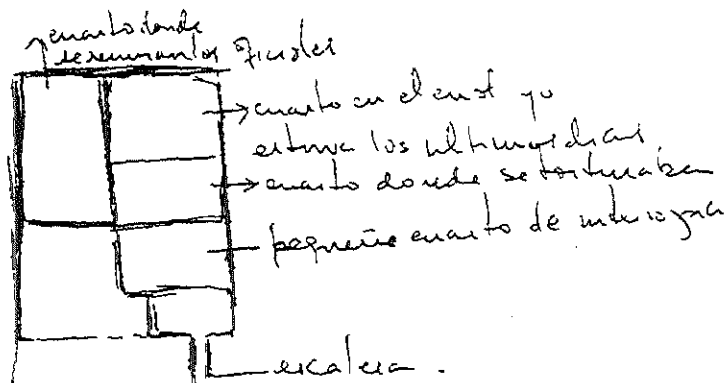 cuarto donde
se reunian los fiscales
cuarto en el cual yo
estuve los ultimos dias,
cuarto donde se torturaba
pequeño cuarto de interroga
escalera.